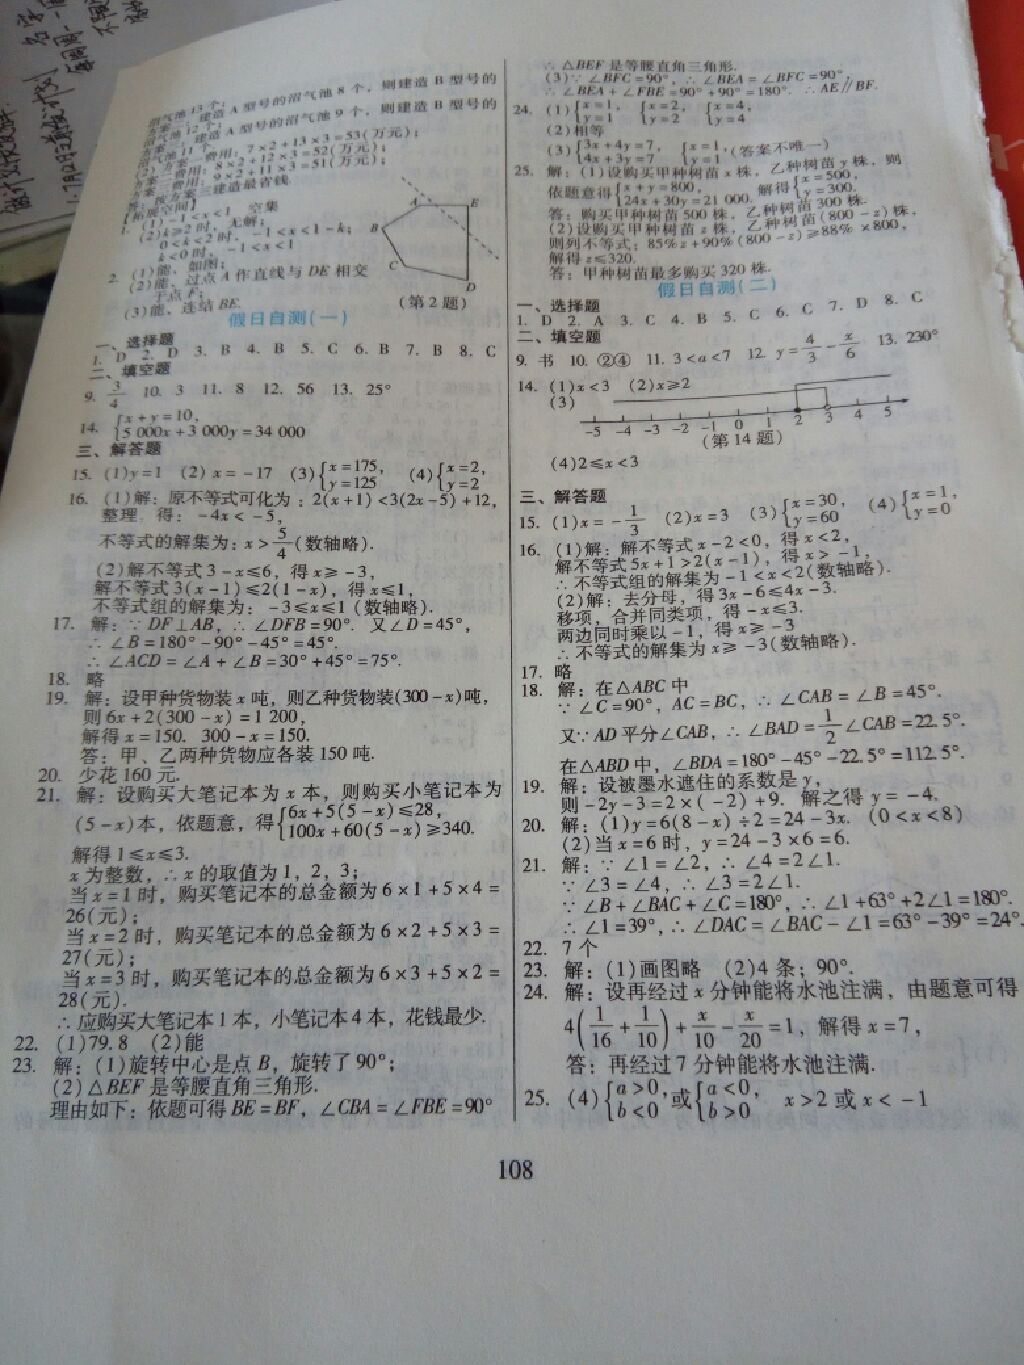 沼气池 13 个;
方案二:建造 A 型号的沼气池 8 个,则建造 B 型号的
沼气池 12 个;
方案三:建造 A 型号的沼气池 9 个,则建造 B 型号的
沼气池 11 个
方案一费用:7×2+13×3=53(万元);
方案二费用:8×2+12×3=52(万元);
方案三费用:9×2+11×3=51(万元);
答:按方案三建造最省钱.
【拓展空间】
1. (1) -1<x<1 空集
(2) k≥2 时,无解;
0<k<2 时,-1<x<1-k;
k<0 时,-1<x<1
2. (1)能,如图;
(2)能、过点 A 作直线与 DE 相交
于点 F;
(3)能、连结 BE.
A E B C D
(第 2 题)
假日自测(一)
一、选择题
1. D 2. D 3. B 4. B 5. C 6. B 7. B 8. C
二、填空题
9. 3/4 10. 3 11. 8 12. 56 13. 25°
14. {x+y=10, 5 000x+3 000y=34 000
三、解答题
15. (1)y=1 (2) x=-17 (3){x=175, y=125 (4){x=2, y=2
16. (1)解:原不等式可化为:2(x+1)<3(2x-5)+12,
整理,得:-4x<-5,
不等式的解集为:x>5/4(数轴略).
(2)解不等式 3-x≤6,得 x≥-3,
解不等式 3(x-1)≤2(1-x),得 x≤1,
不等式组的解集为:-3≤x≤1(数轴略).
17. 解:∵DF⊥AB,∴∠DFB=90°. 又∠D=45°,
∴∠B=180°-90°-45°=45°.
∴∠ACD=∠A+∠B=30°+45°=75°.
18. 略
19. 解:设甲种货物装 x 吨,则乙种货物装(300-x)吨,
则 6x+2(300-x)=1 200,
解得 x=150. 300-x=150.
答:甲、乙两种货物应各装 150 吨.
20. 少花 160 元.
21. 解:设购买大笔记本为 x 本,则购买小笔记本为
(5-x)本,依题意,得{6x+5(5-x)≤28, 100x+60(5-x)≥340.
解得 1≤x≤3.
x 为整数,∴x 的取值为 1,2,3;
当 x=1 时,购买笔记本的总金额为 6×1+5×4=
26(元);
当 x=2 时,购买笔记本的总金额为 6×2+5×3=
27(元);
当 x=3 时,购买笔记本的总金额为 6×3+5×2=
28(元).
∴应购买大笔记本 1 本,小笔记本 4 本,花钱最少.
22. (1)79.8 (2)能
23. 解:(1)旋转中心是点 B,旋转了 90°;
(2)△BEF 是等腰直角三角形.
理由如下:依题可得 BE=BF,∠CBA=∠FBE=90°
∴△BEF 是等腰直角三角形.
(3)∵∠BFC=90°,∴∠BEA=∠BFC=90°
∴∠BEA+∠FBE=90°+90°=180°. ∴AE∥BF.
24. (1){x=1, y=1 {x=2, y=2 {x=4, y=4
(2)相等
(3){3x+4y=7, 4x+3y=7 {x=1, y=1,(答案不唯一)
25. 解:(1)设购买甲种树苗 x 株,乙种树苗 y 株,则
依题意得{x+y=800, 24x+30y=21 000. 解得{x=500, y=300.
答:购买甲种树苗 500 株,乙种树苗 300 株.
(2)设购买甲种树苗 z 株,乙种树苗(800-z)株,
则列不等式:85%z+90%(800-z)≥88%×800,
解得 z≤320.
答:甲种树苗最多购买 320 株.
假日自测(二)
一、选择题
1. D 2. A 3. C 4. B 5. C 6. C 7. D 8. C
二、填空题
9. 书 10. ②④ 11. 3<a<7 12. y=4/3-x/6 13. 230°
14. (1)x<3 (2)x≥2
(3)
-5 -4 -3 -2 -1 0 1 2 3 4 5
(第 14 题)
(4)2≤x<3
三、解答题
15. (1)x=-1/3 (2)x=3 (3){x=30, y=60 (4){x=1, y=0
16. (1)解:解不等式 x-2<0,得 x<2,
解不等式 5x+1>2(x-1),得 x>-1,
∴不等式组的解集为 -1<x<2(数轴略).
(2)解:去分母,得 3x-6≤4x-3.
移项,合并同类项,得 -x≤3.
两边同时乘以 -1,得 x≥-3
∴不等式的解集为 x≥-3(数轴略).
17. 略
18. 解:在△ABC 中
∵∠C=90°,AC=BC,∴∠CAB=∠B=45°.
又∵AD 平分∠CAB,∴∠BAD=1/2∠CAB=22.5°.
在△ABD 中,∠BDA=180°-45°-22.5°=112.5°.
19. 解:设被墨水遮住的系数是 y,
则 -2y-3=2×(-2)+9. 解之得 y=-4.
20. 解:(1)y=6(8-x)÷2=24-3x. (0<x<8)
(2)当 x=6 时,y=24-3×6=6.
21. 解:∵∠1=∠2,∴∠4=2∠1.
∵∠3=∠4,∴∠3=2∠1.
∵∠B+∠BAC+∠C=180°,∴∠1+63°+2∠1=180°.
∴∠1=39°,∴∠DAC=∠BAC-∠1=63°-39°=24°.
22. 7 个
23. 解:(1)画图略 (2)4 条;90°.
24. 解:设再经过 x 分钟能将水池注满,由题意可得
4(1/16+1/10)+x/10-x/20=1,解得 x=7,
答:再经过 7 分钟能将水池注满.
25. (4){a>0, b<0 或{a<0, b>0, x>2 或 x<-1
108